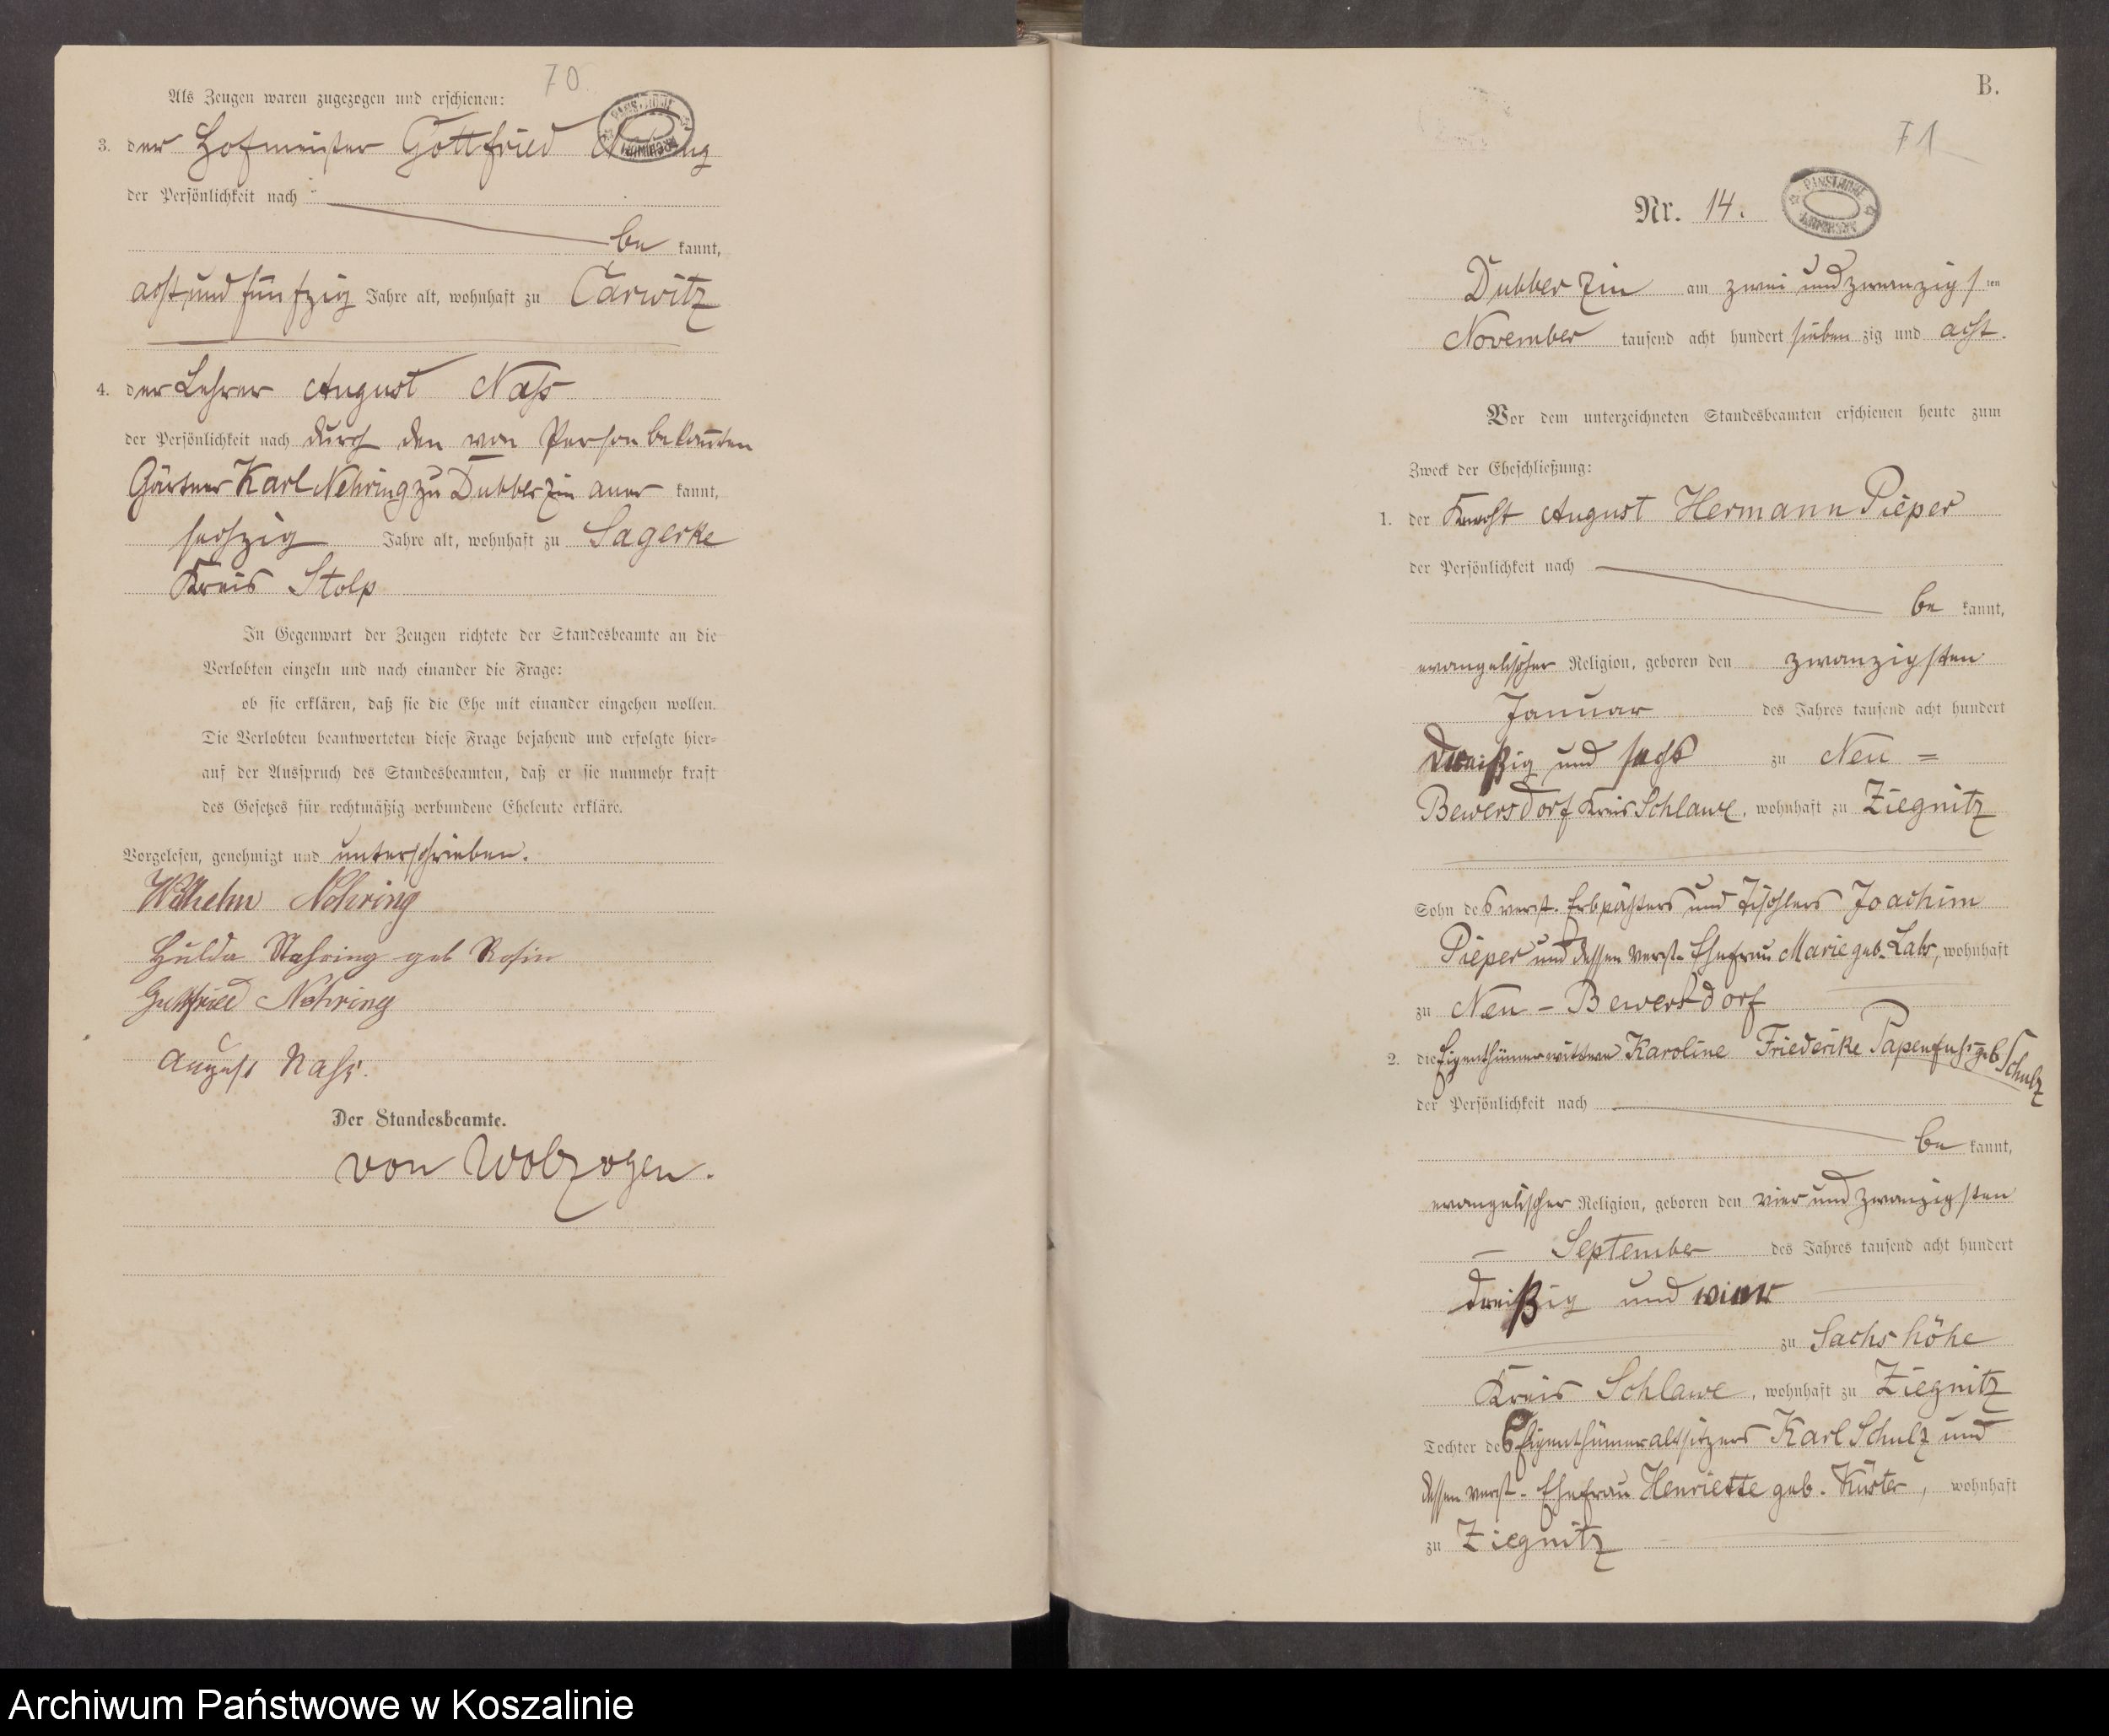 70
Als Zeugen waren zugezogen und erschienen:
3. der Hofmeister Gottfried
der Persönlichkeit nach
be kannt,
acht und fünfzig Jahre alt, wohnhaft zu Carwitz
4. der Lehrer August Nass
der Persönlichkeit nach durch den von Person bekannten
Gärtner Karl Nehring zu Dubberzin aner kannt,
sechzig Jahre alt, wohnhaft zu Sagerke
Kreis Stolp
In Gegenwart der Zeugen richtete der Standesbeamte an die
Verlobten einzeln und nach einander die Frage:
ob sie erklären, daß sie die Ehe mit einander eingehen wollen.
Die Verlobten beantworteten diese Frage bejahend und erfolgte hier=
auf der Ausspruch des Standesbeamten, daß er sie nunmehr kraft
des Gesetzes für rechtmäßig verbundene Eheleute erkläre.
Vorgelesen, genehmigt und unterschrieben.
Wilhelm Nehring
Hulda Nehring geb Rosin
Gottfried Nehring
August Nass.
Der Standesbeamte.
von Wolzogen.
B.
71
Nr. 14.
PANSTWOWE ARCHIWUM
Dubberzin am zwei und zwanzigs ten
November tausend acht hundert sieben zig und acht.
Vor dem unterzeichneten Standesbeamten erschienen heute zum
Zweck der Eheschließung:
1. der Knecht August Hermann Pieper
der Persönlichkeit nach
be kannt,
evangelischer Religion, geboren den zwanzigsten
Januar des Jahres tausend acht hundert
dreißig und sechs zu Neu =
Bewersdorf Kreis Schlawe, wohnhaft zu Ziegnitz
Sohn des verst. Erbpächters und Tischlers Joachim
Pieper und dessen verst. Ehefrau Marie geb. Labs, wohnhaft
zu Neu - Bewersdorf
2. die Eigenthümerwittwe Karoline Friederike Papenfuss geb Schulz
der Persönlichkeit nach
be kannt,
evangelischer Religion, geboren den vier und zwanzigsten
September des Jahres tausend acht hundert
dreißig und vier
zu Sachshöhe
Kreis Schlawe, wohnhaft zu Ziegnitz
Tochter des Eigenthümeraltsitzers Karl Schulz und
dessen verst. Ehefrau Henriette geb. Küster, wohnhaft
zu Ziegnitz
Archiwum Państwowe w Koszalinie